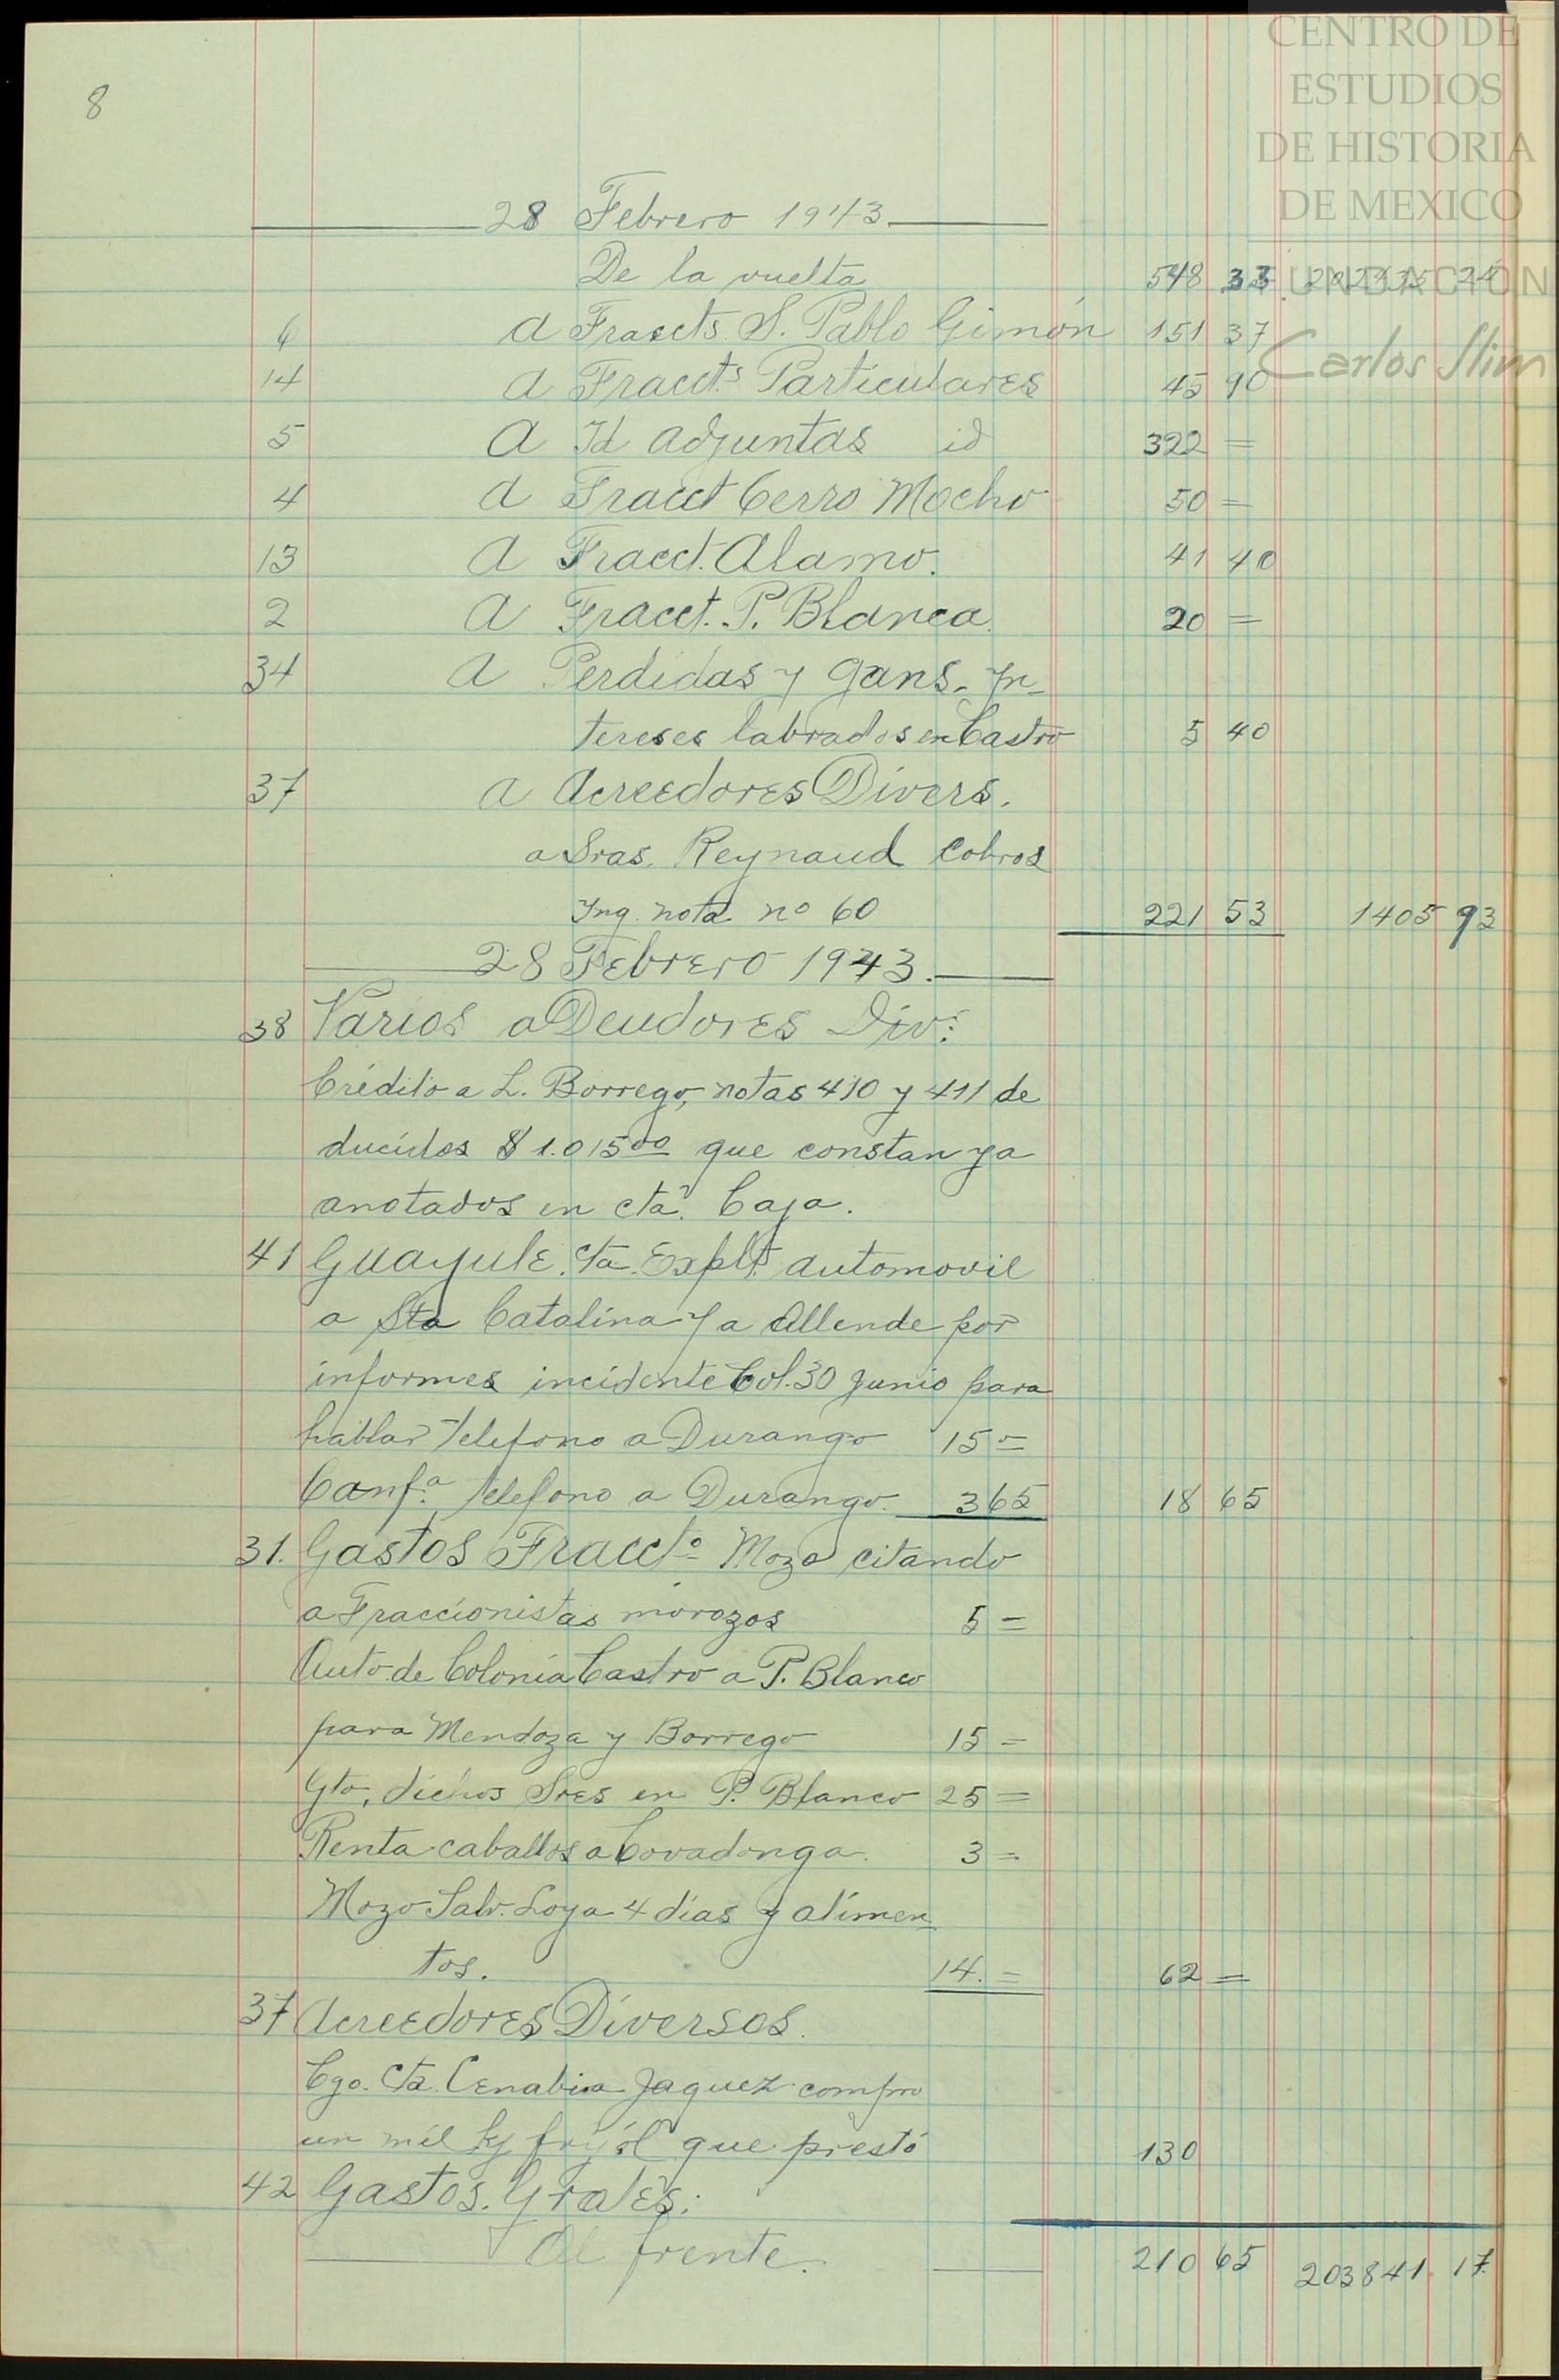 8
CENTRO DE
ESTUDIOS
DE HISTORIA
DE MEXICO
FUNDACIÓN
Carlos Slim
28 Febrero 1943
De la vuelta 548 33 202435 24
6 a Fraccts S. Pablo Gimón 151 37
14 a Fraccts Particulares 45 90
5 a Id adjuntas id 322 =
4 a Fracct Cerro Mocho 50 =
13 a Fracct. Alamo. 41 40
2 a Fracct. P. Blanca 20 =
34 a Perdidas y Gans. In-
tereses labrados en Castro 5 40
37 a Acreedores Divers.
a Sras. Reynaud Cobros
Ing. nota no 60 221 53 1405 93
28 Febrero 1943.
38 Varios a Deudores Div.
Crédito a L. Borrego, notas 410 y 411 de
ducidos $ 1.015 00 que constan ya
anotados en cta. Caja.
41 Guayule. Cta. Explt. automovil
a Sta Catalina y a Allende por
informes incidente Col. 30 Junio para
hablar Telefono a Durango 15 =
Conf.a telefono a Durango. 3 65 18 65
31. Gastos Fracct.o Mozo citando
a Fraccionistas morozos 5 =
Auto de Colonia Castro a P. Blanco
para Mendoza y Borrego 15 =
Gto. dichos Sres en P. Blanco 25 =
Renta caballos a Covadonga. 3 =
Mozo Salv. Loya 4 días y alimen
tos. 14. = 62 =
37 Acreedores Diversos.
Cgo. Cta. Cenabia Jaquez compro
un mil kg frijól que prestó 130
42 Gastos. Grales:
Al frente. 210 65 203841 17